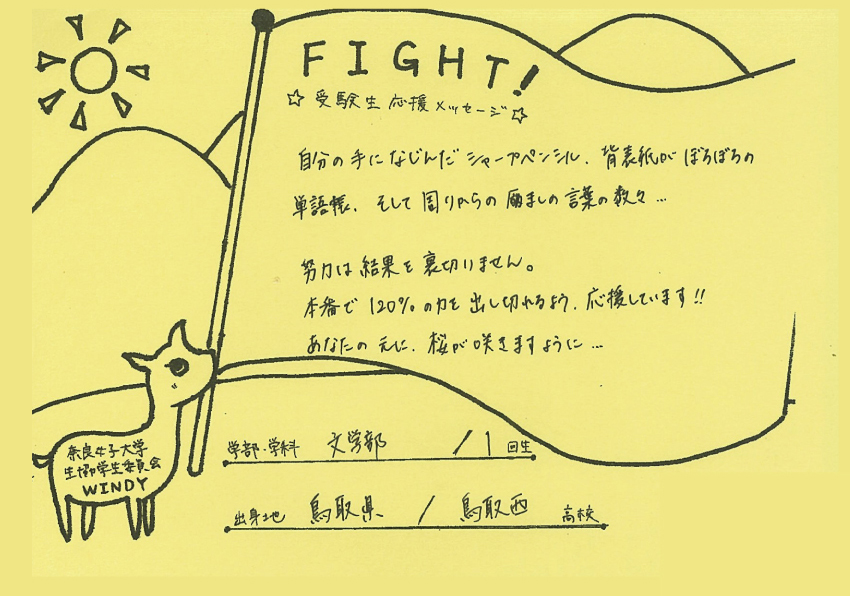 FIGHT!
☆受験生応援メッセージ☆
自分の手になじんだシャープペンシル、背表紙がぼろぼろの
単語帳、そして周りからの励ましの言葉の数々…
努力は結果を裏切りません。
本番で120%の力を出し切れるよう、応援しています!!
あなたの元に、桜が咲きますように…
学部・学科 文学部 / 1 回生
出身地 鳥取県 / 鳥取西 高校
奈良女子大学
生協学生委員会
WINDY